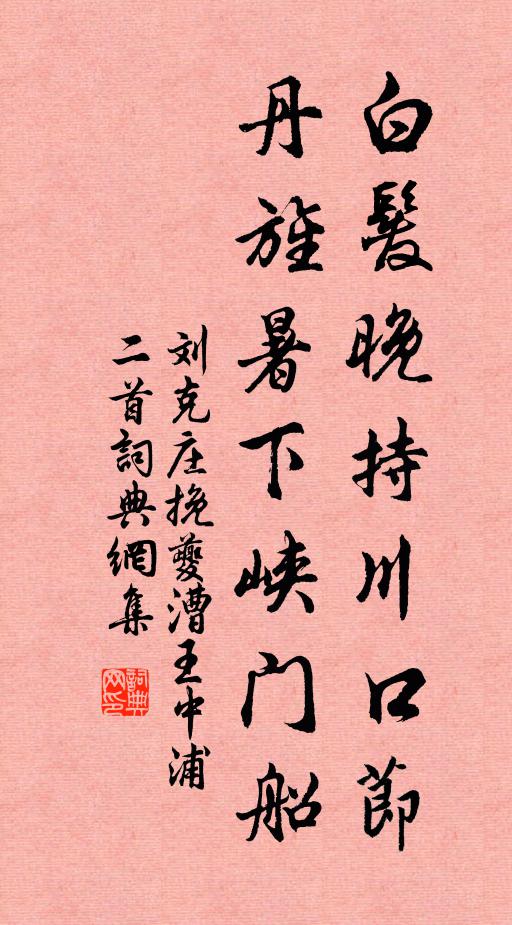 白髮晚持川口節
丹旌暑下峡门船
刘克庄挽夔漕王中浦
二首詞典網集
詞典
网印